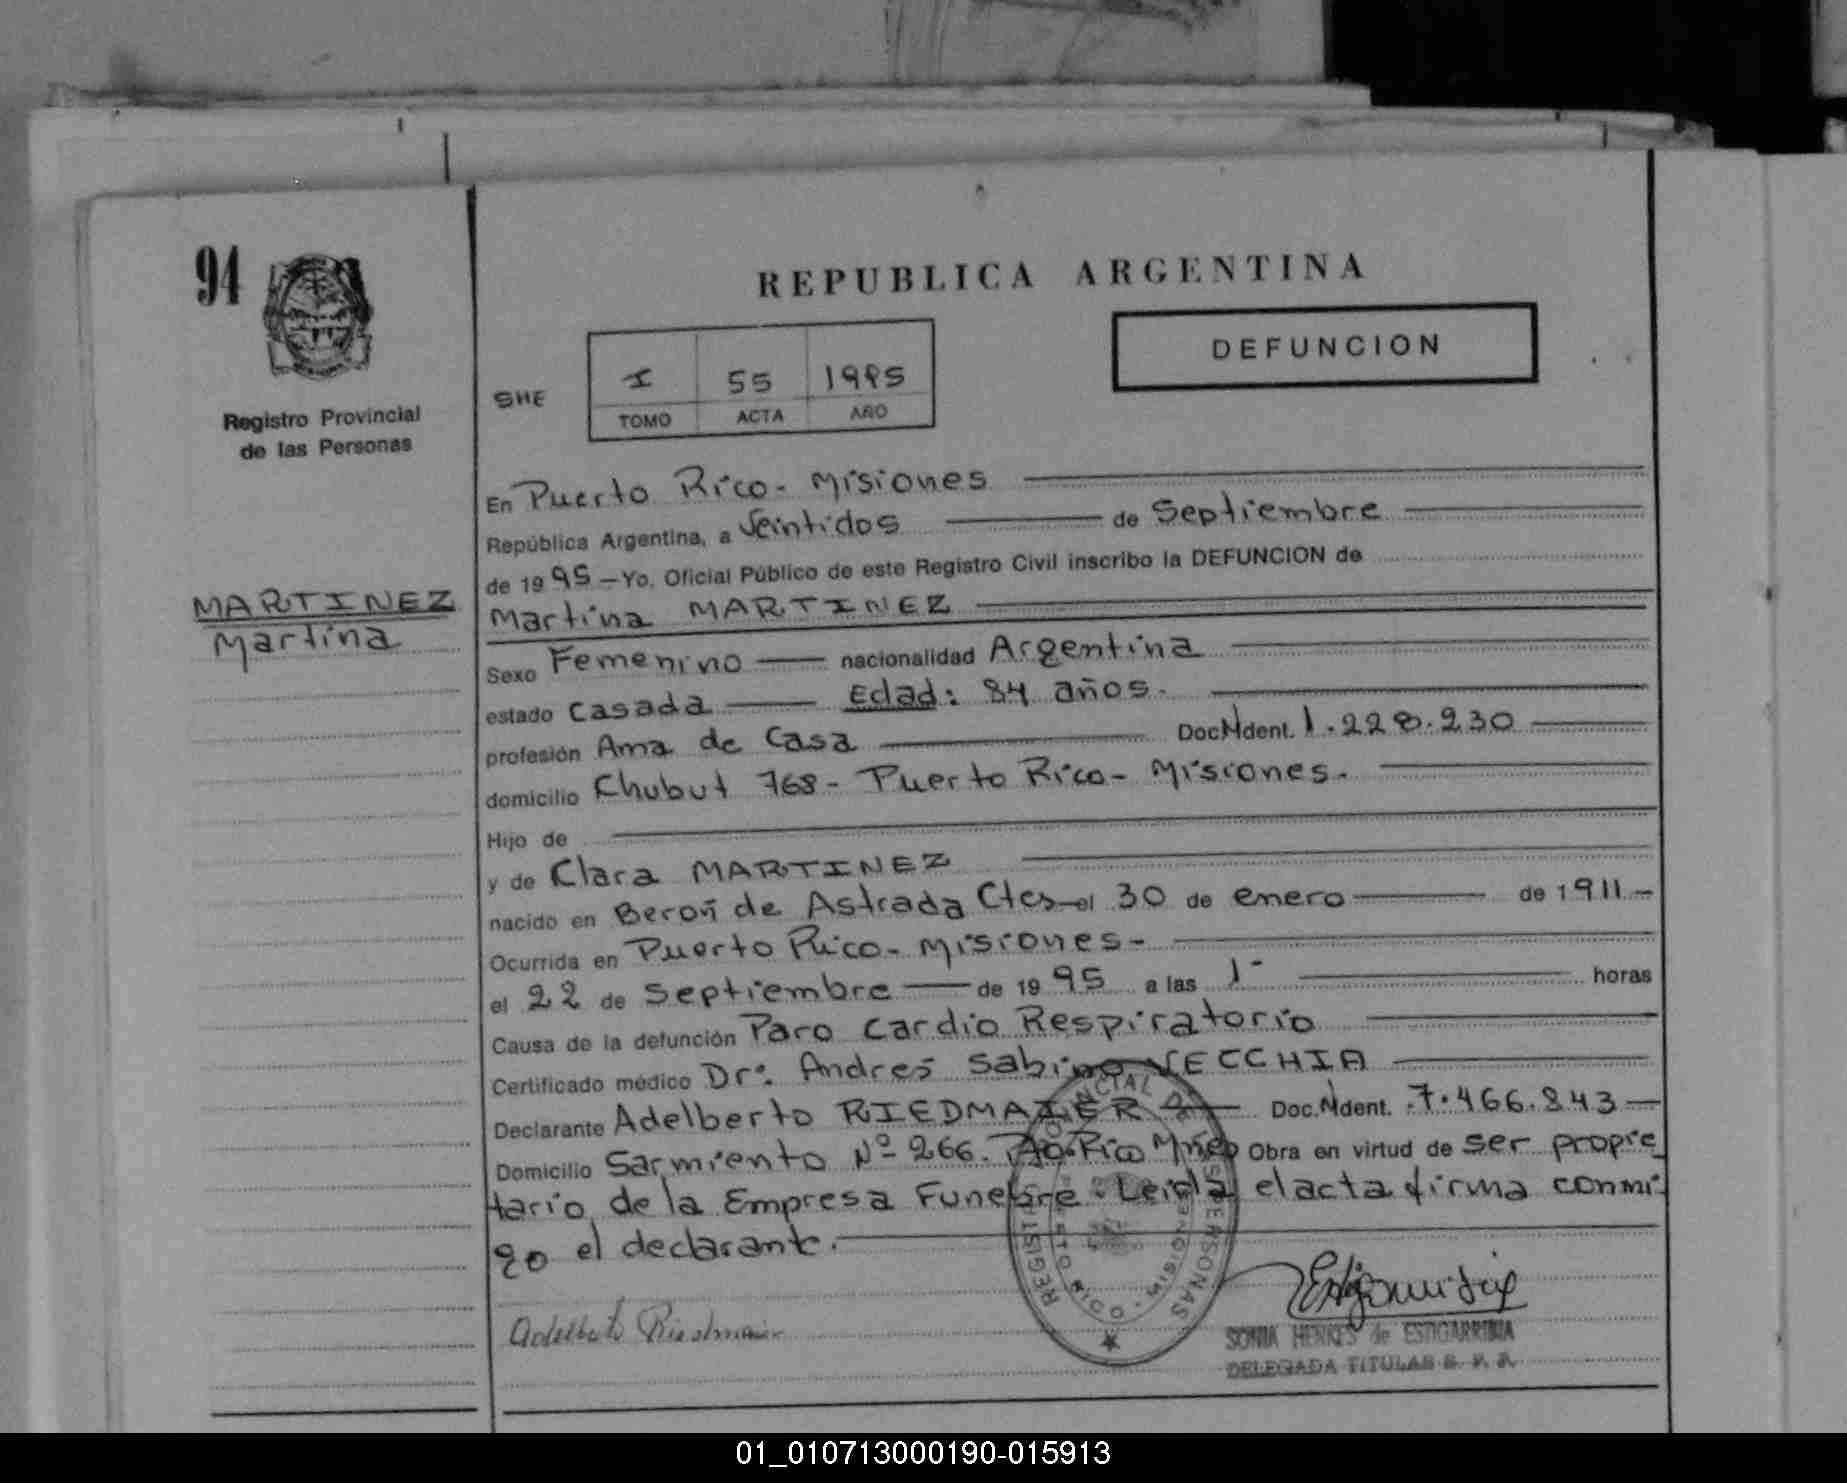 94
REPUBLICA ARGENTINA
DEFUNCION
SHE
I 55 1995
TOMO ACTA AÑO
Registro Provincial
de las Personas
MARTINEZ
Martina
En Puerto Rico - Misiones
República Argentina, a Veintidos de Septiembre
de 1995 — Yo, Oficial Público de este Registro Civil inscribo la DEFUNCION de
Martina MARTINEZ
Sexo Femenino nacionalidad Argentina
estado Casada Edad: 84 años.
profesión Ama de Casa Doc. Ident. 1.228.230
domicilio Chubut 768 - Puerto Rico - Misiones.
Hijo de
y de Clara MARTINEZ
nacido en Beron de Astrada Ctes el 30 de enero de 1911 -
Ocurrida en Puerto Rico - Misiones -
el 22 de Septiembre de 1995 a las 1- horas
Causa de la defunción Paro Cardio Respiratorio
Certificado médico Dr. Andres Sabino VECCHIA
Declarante Adelberto RIEDMAIER Doc. Ident. 7.466.843
Domicilio Sarmiento Nº 266. Pto. Rico Mnes Obra en virtud de ser propie
tario de la Empresa Funebre. Leida el acta firma conmi
go el declarante.
REGISTRO PROVINCIAL DE LAS PERSONAS
PUERTO RICO - MISIONES
Adelberto Riedmaier
SONIA HERKES de ESTIGARRIBIA
DELEGADA TITULAR R. P. P.
01_010713000190-015913